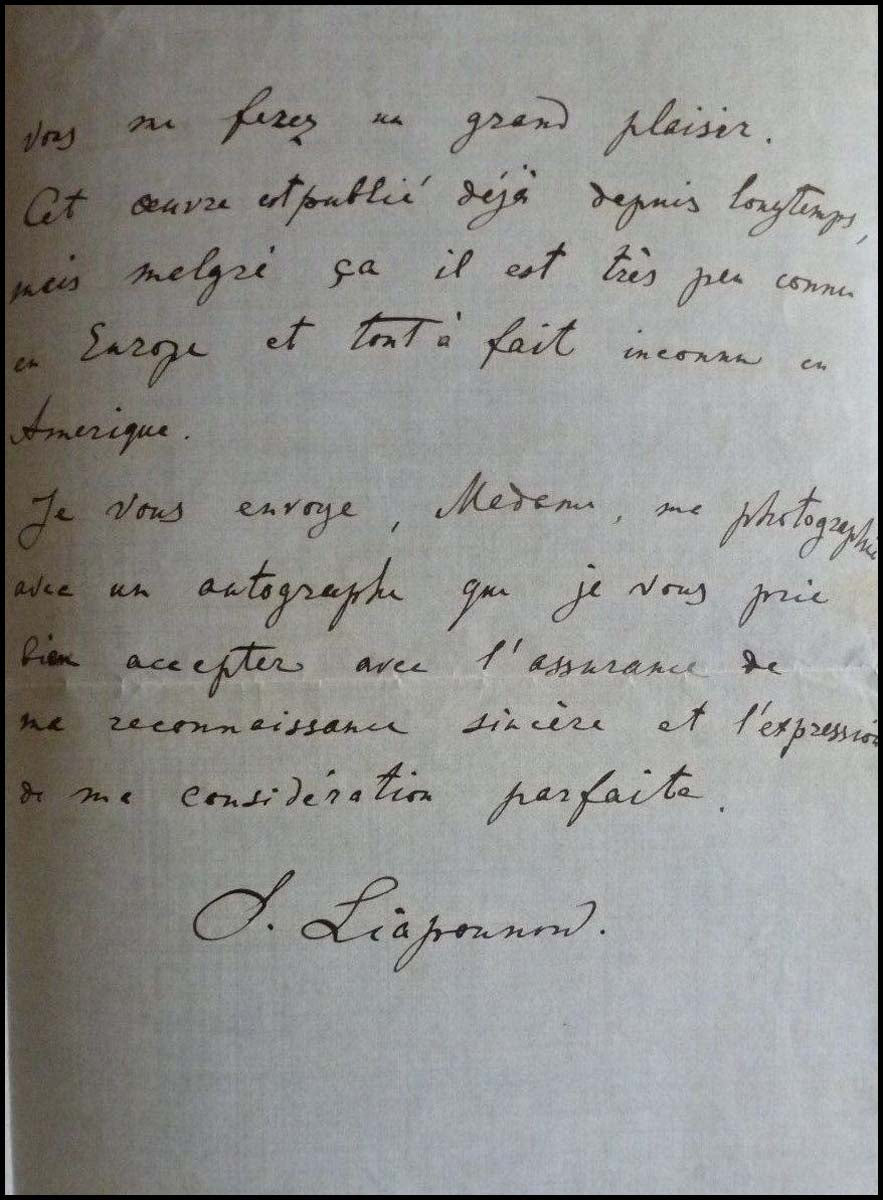 vous me ferez un grand plaisir.
Cet œuvre est publié déjà depuis longtemps,
mais malgré ça il est très peu connu
en Europe et tout à fait inconnu en
Amerique.
Je vous envoye, Madame, ma photographie
avec un autographe que je vous prie
bien accepter avec l'assurance de
ma reconnaissance sincère et l'expression
de ma considération parfaite.
S. Liapounow.